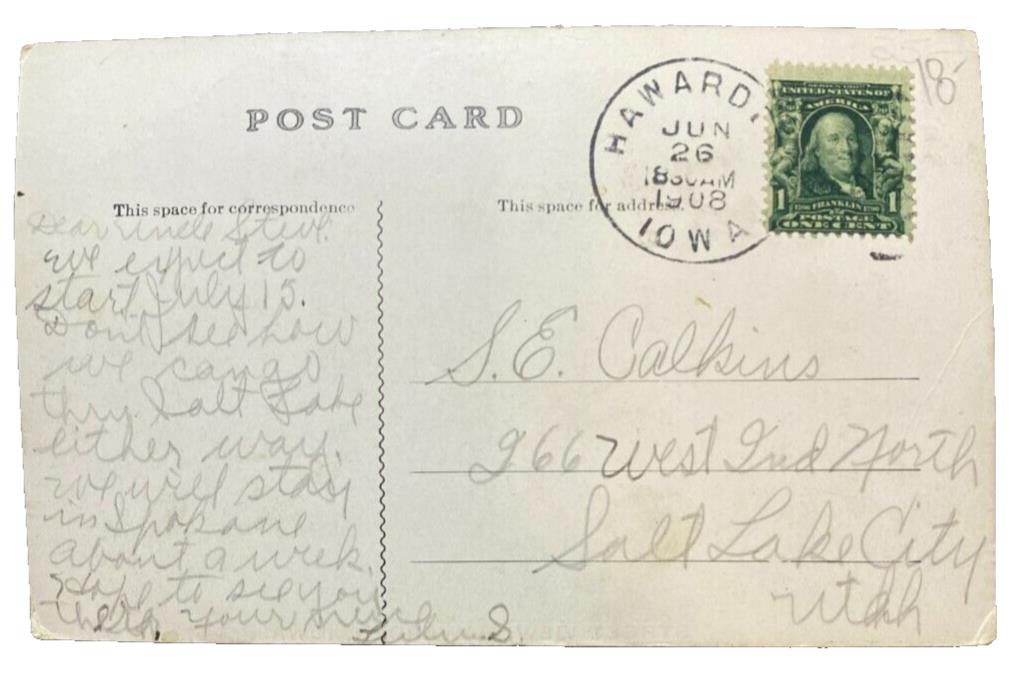 POST CARD
This space for correspondence
This space for address.
HAWARD
JUN
26
1830AM
1908
IOWA
UNITED STATES OF
AMERICA
1 FRANKLIN 1
POSTAGE
ONE CENT
18
Dear Uncle Steve.
we expect to
start July 15.
Dont see how
we can go
thru Salt Lake
either way.
we will stay
in Spokane
about a week.
Hope to see you
there your niece
S
S. E. Calkins
266 West 2nd North
Salt Lake City
Utah